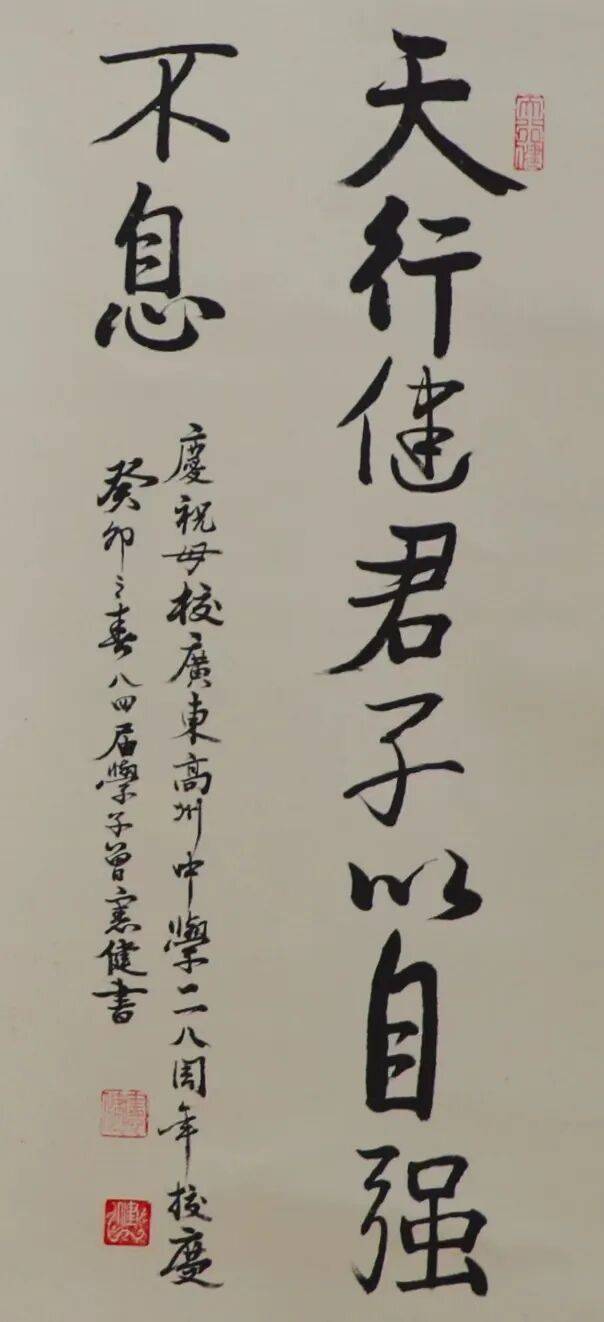 天行健
天行健君子以自强
不息
慶祝母校廣東高州中學二八周年校慶
癸卯之春八四届學子曾憲健書